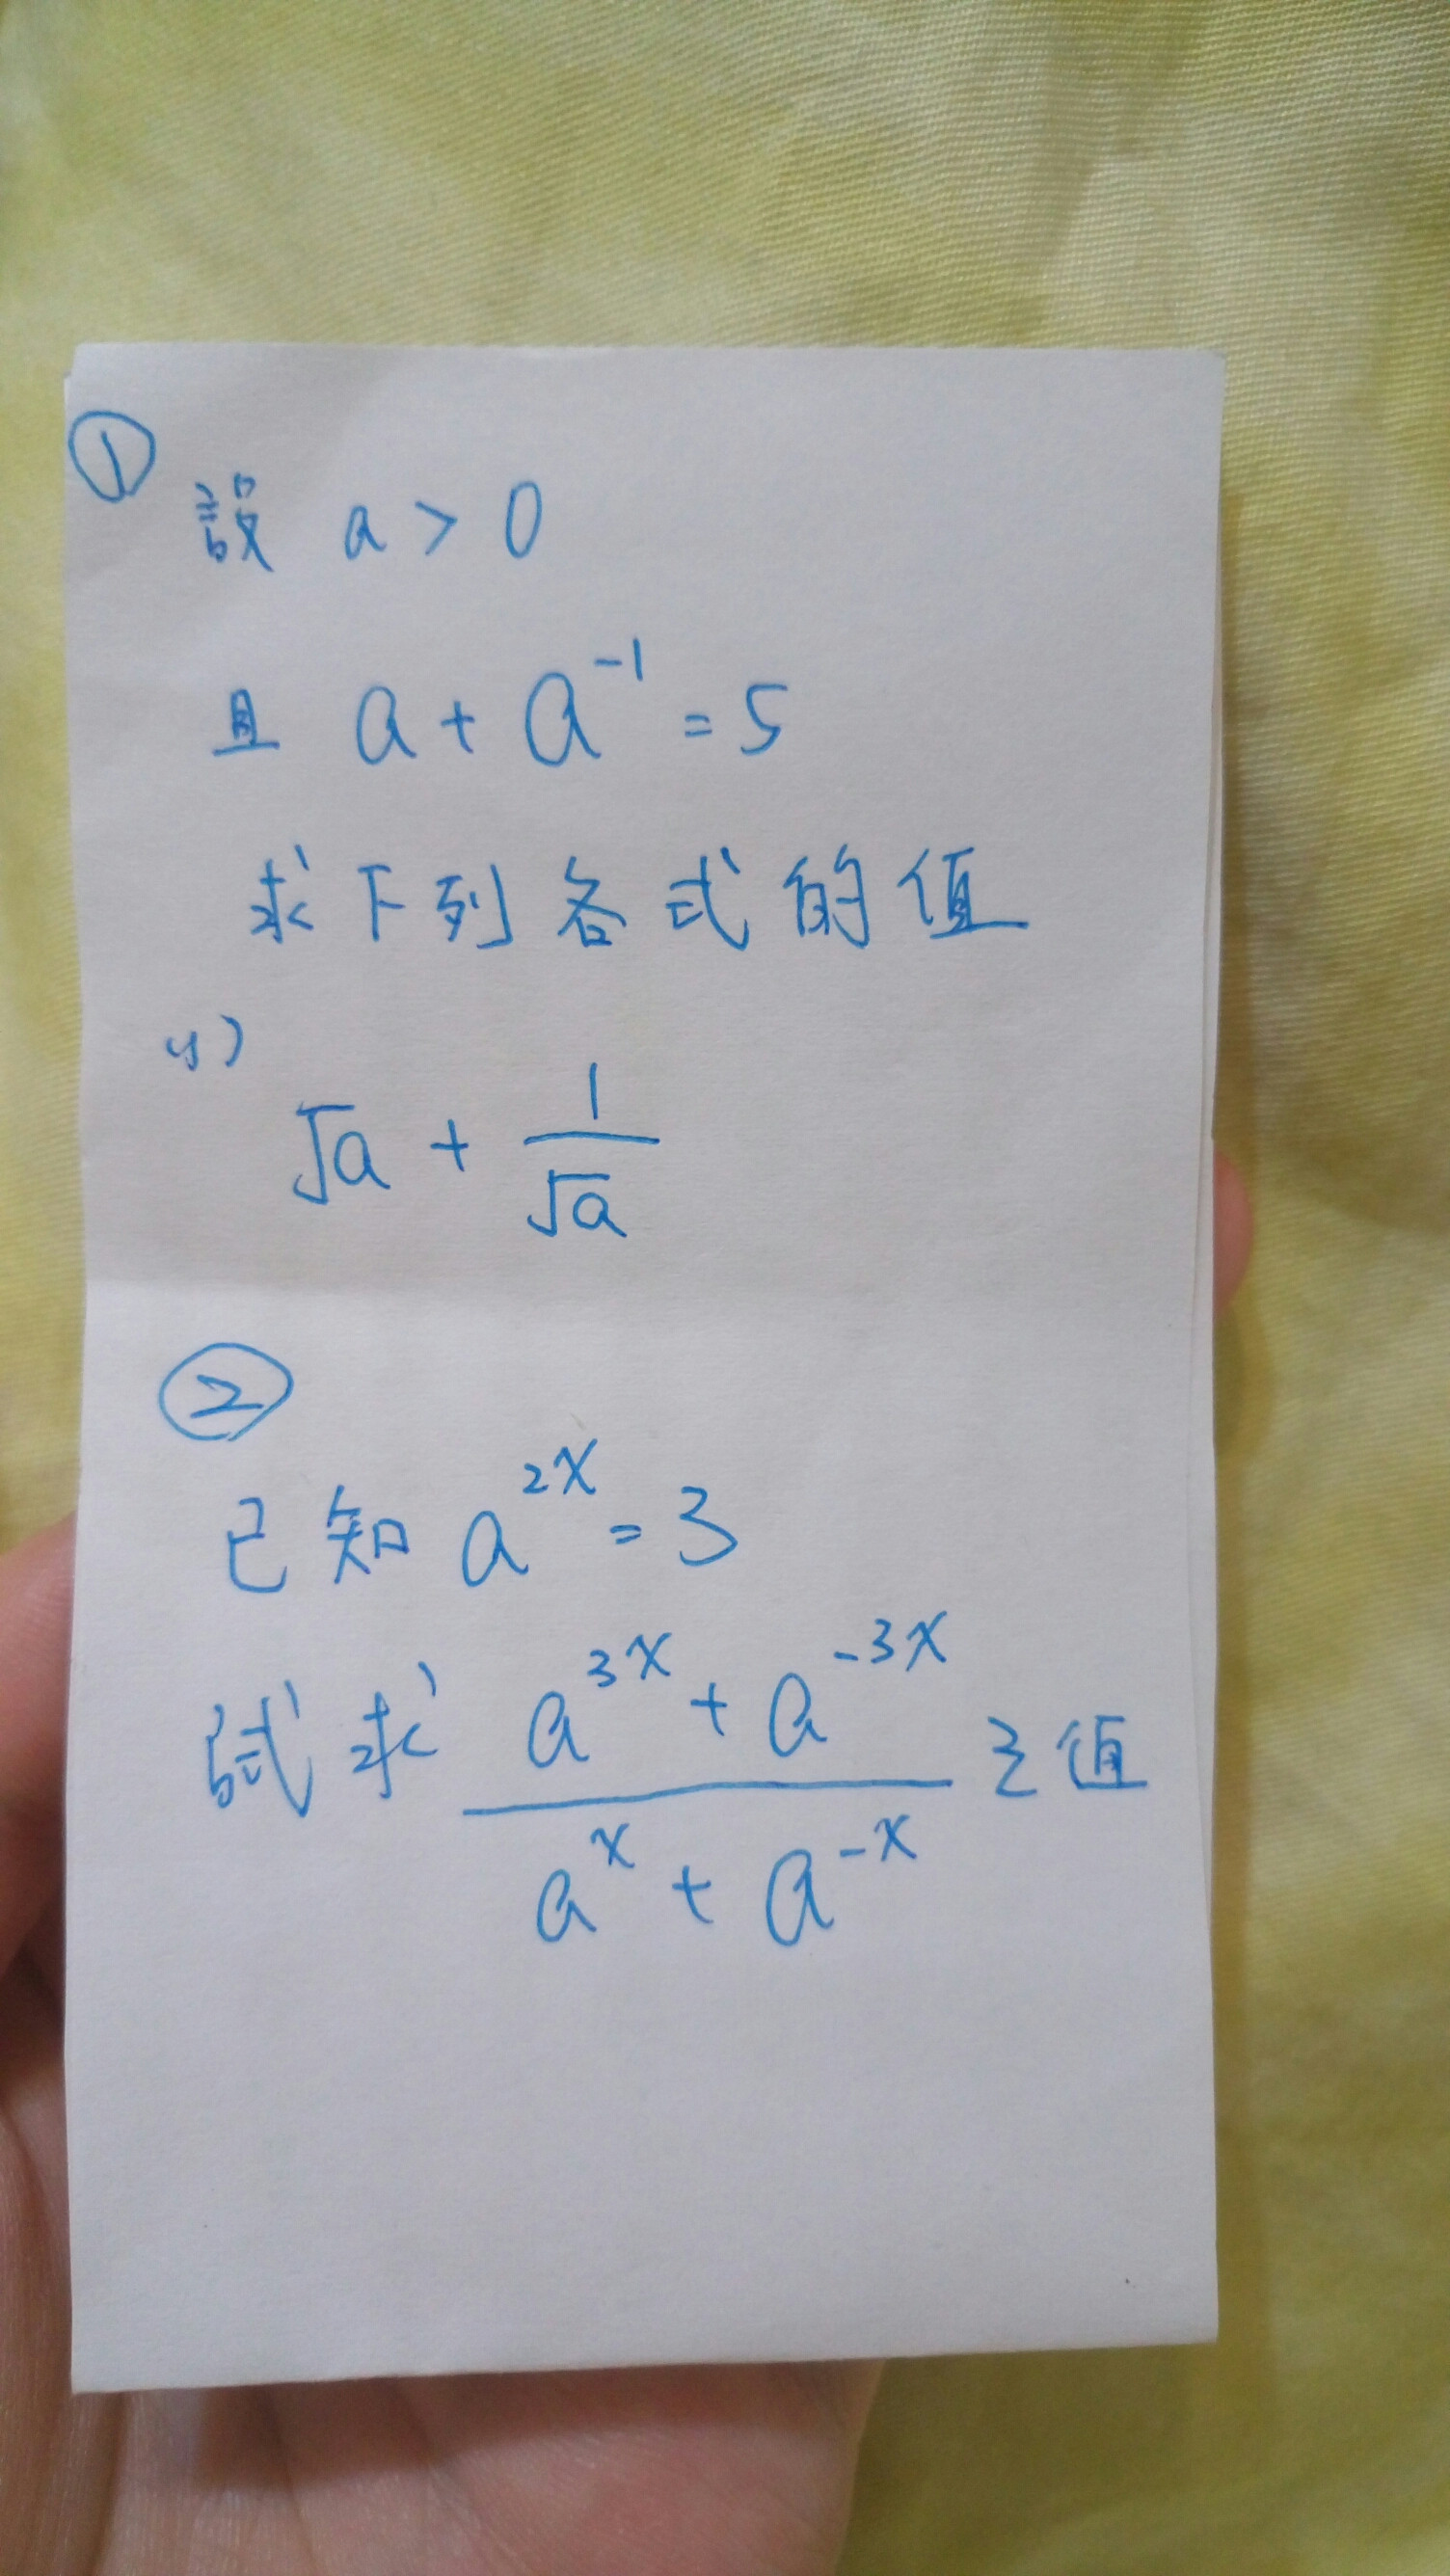 ①
設 a > 0
且 a + a⁻¹ = 5
求下列各式的值
(1)
√a + 1/√a
②
已知 a²ˣ = 3
試求 (a³ˣ + a⁻³ˣ)/(aˣ + a⁻ˣ) 之值